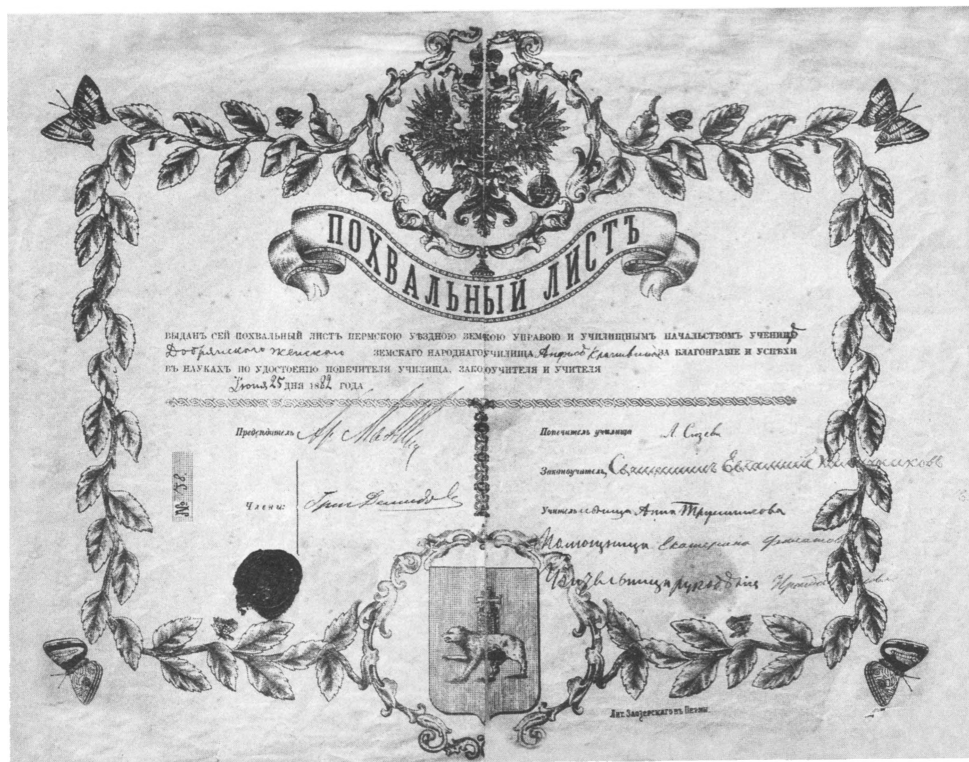 ПОХВАЛЬНЫЙ ЛИСТЪ
ВЫДАНЪ СЕЙ ПОХВАЛЬНЫЙ ЛИСТЪ ПЕРМСКОЮ УѢЗДНОЮ ЗЕМСКОЮ УПРАВОЮ И УЧИЛИЩНЫМЪ НАЧАЛЬСТВОМЪ УЧЕНИЦѢ
Добрянскаго женскаго ЗЕМСКАГО НАРОДНАГО УЧИЛИЩА ЗА БЛАГОНРАВІЕ И УСПѢХИ
ВЪ НАУКАХЪ ПО УДОСТОЕНІЮ ПОПЕЧИТЕЛЯ УЧИЛИЩА, ЗАКОНОУЧИТЕЛЯ И УЧИТЕЛЯ
Іюня 25 ДНЯ 1882 ГОДА
Предсѣдатель
Члены:
№ 58
Попечитель училища А. Сюзевъ
Законоучитель, Священникъ Евгеній
Учительница Анна Трушникова
Помощница Екатерина
Учительница рукодѣлія
Лит. Заозерскаго въ Перми.